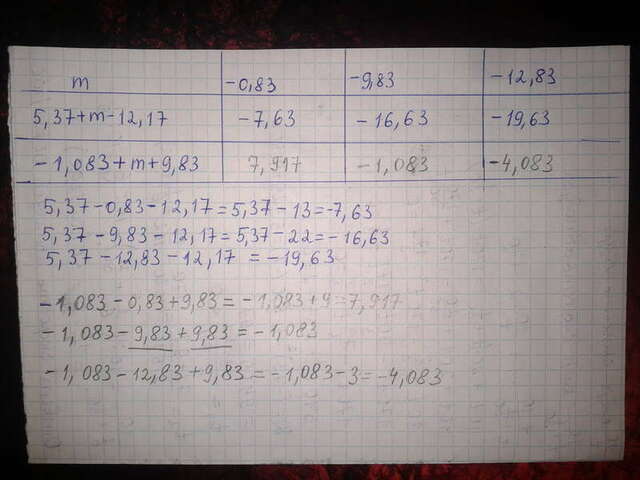 m -0,83 -9,83 -12,83
5,37+m-12,17 -7,63 -16,63 -19,63
-1,083+m+9,83 7,917 -1,083 -4,083
5,37-0,83-12,17=5,37-13=-7,63
5,37-9,83-12,17=5,37-22=-16,63
5,37-12,83-12,17 =-19,63
-1,083-0,83+9,83=-1,083+9=7,917
-1,083-9,83+9,83=-1,083
-1,083-12,83+9,83=-1,083-3=-4,083